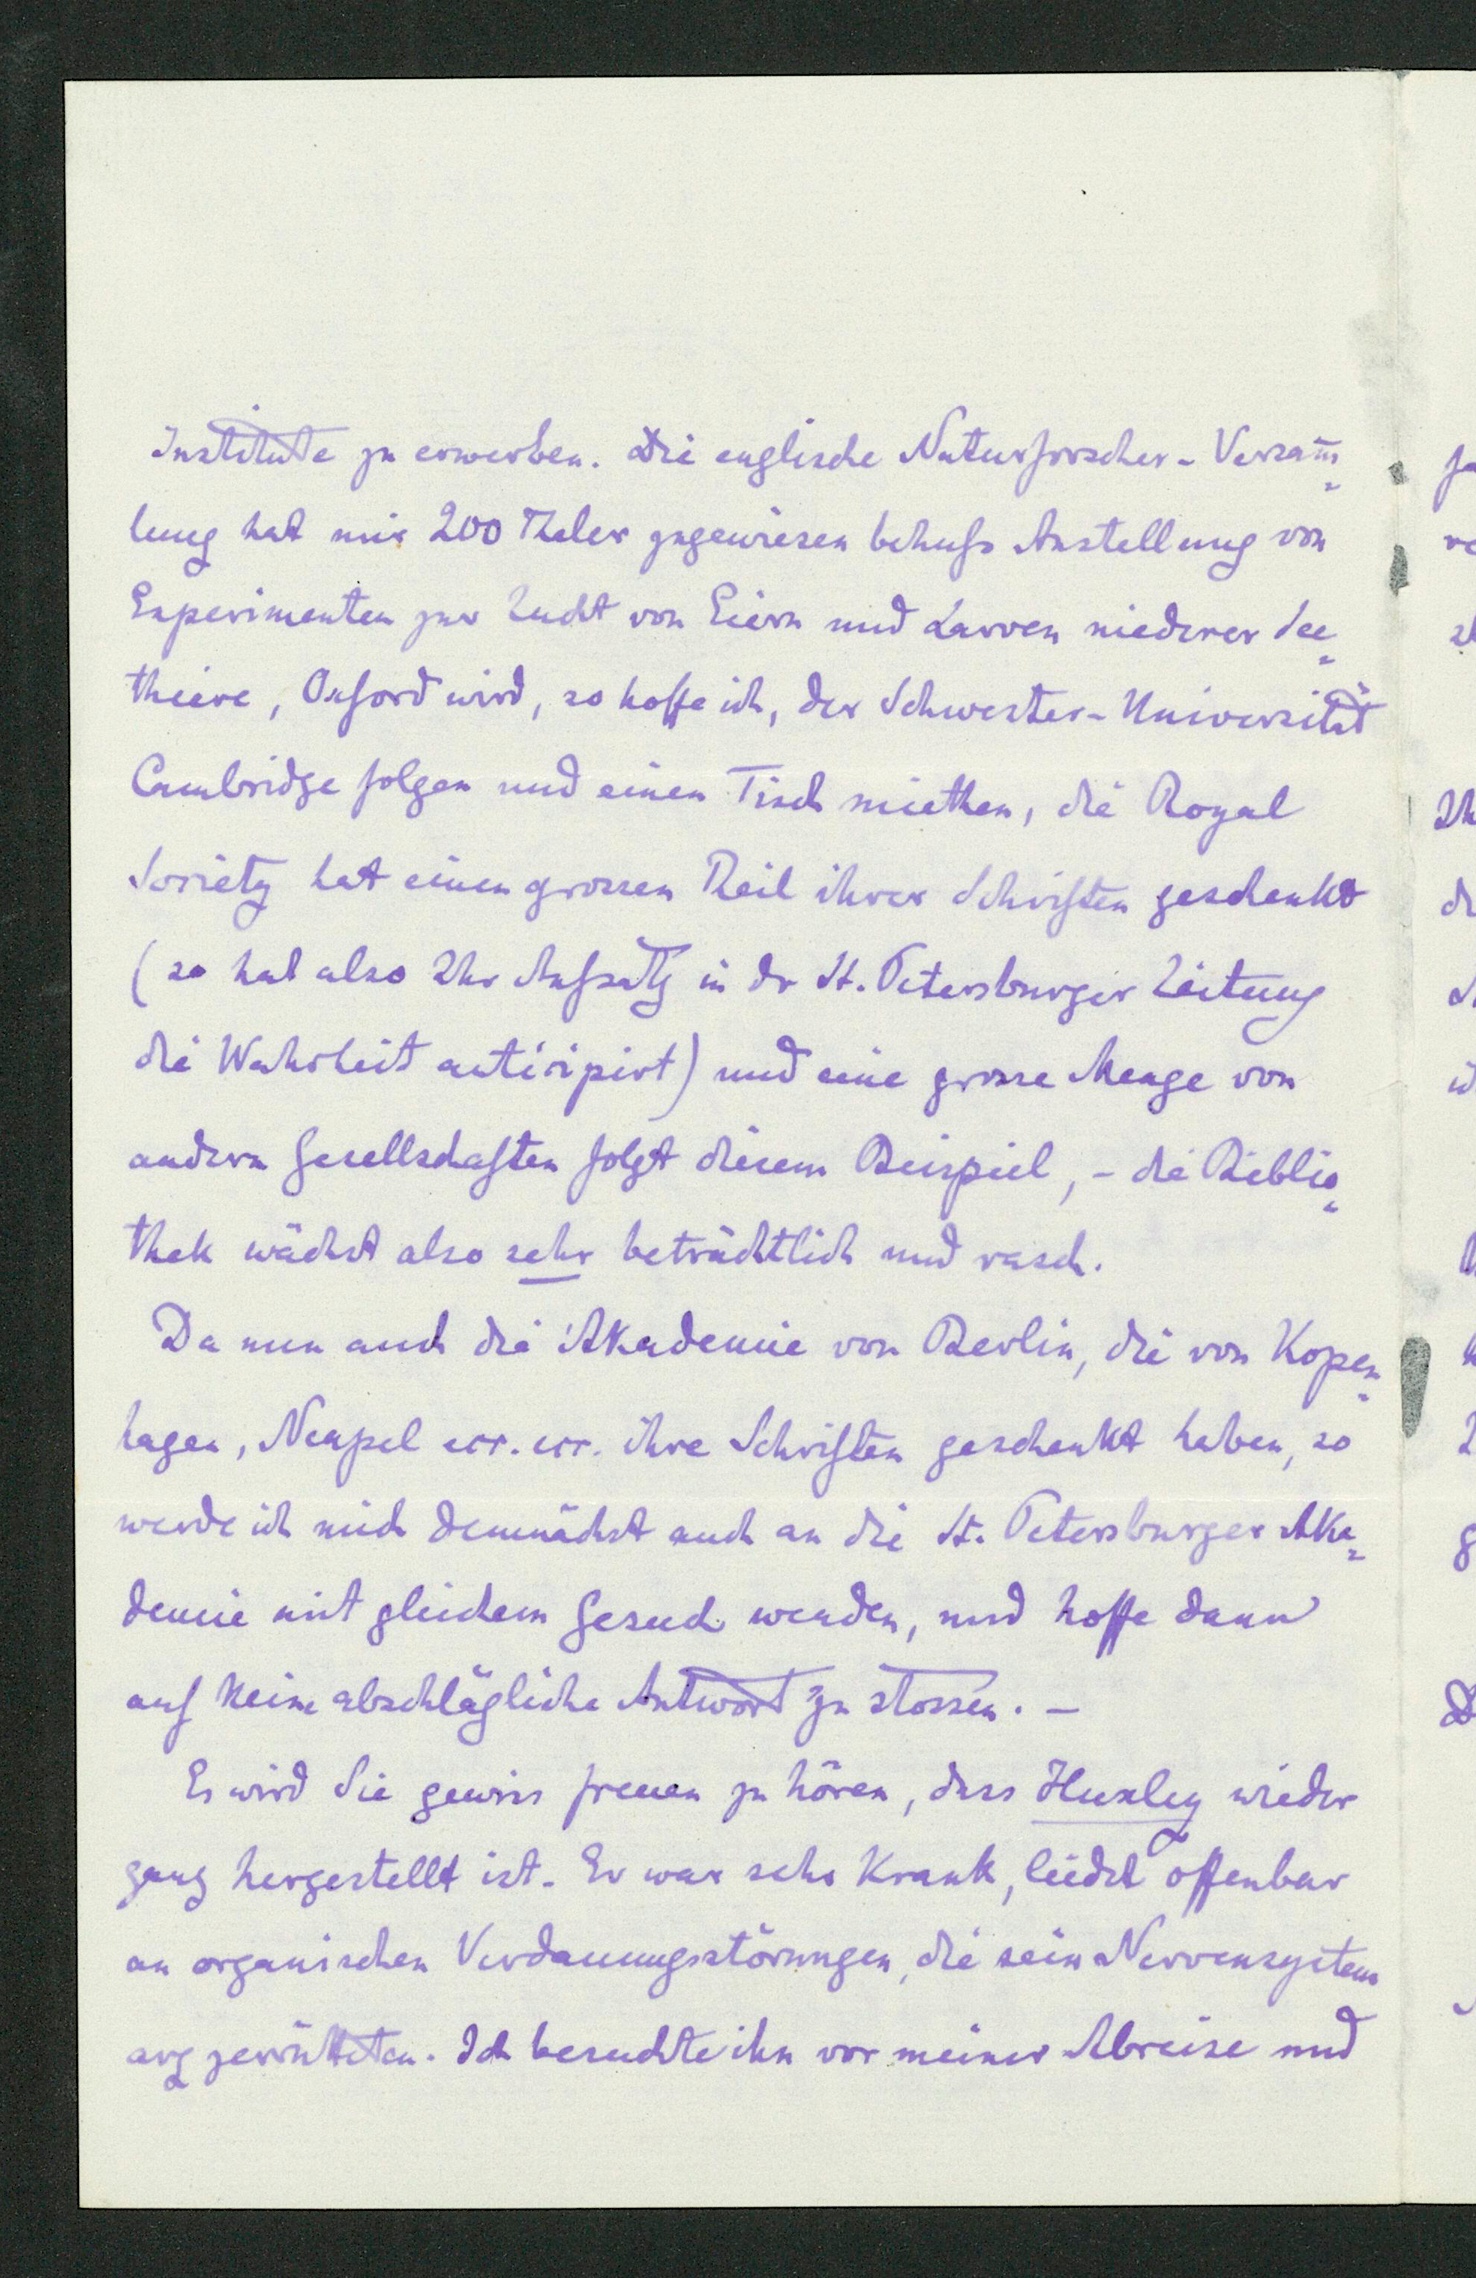 Institute zu erwerben. Die englische Naturforscher-Versam̅-
lung hat mir 200 Thaler zugewiesen behufs Anstellung von
Experimenten zur Zucht von Eiern und Larven niederer See-
thiere, Oxford wird, so hoffe ich, der Schwester-Universität
Cambridge folgen und einen Tisch miethen, die Royal
Society hat einen grossen Theil ihrer Schriften geschenkt
(so hat also Ihr Aufsatz in dr St. Petersburger Zeitung
die Wahrheit anticipirt) und eine grosse Menge von
andern Gesellschaften folgt diesem Beispiel, – die Biblio-
thek wächst also sehr beträchtlich und rasch.
Da nun auch die Akademie von Berlin, die von Kopen-
hagen, Neapel ecc. ecc. ihre Schriften geschenkt haben, so
werde ich mich demnächst auch an die St. Petersburger Aka-
demie mit gleichem Gesuch wenden, und hoffe dann
auf keine abschlägliche Antwort zu stossen. –
Es wird Sie gewiss freuen zu hören, dass Huxley wieder
ganz hergestellt ist. Er war sehr krank, leidet offenbar
an organischen Verdauungsstörungen, die sein Nervensystem
arg zerrütteten. Ich besuchte ihn vor meiner Abreise und